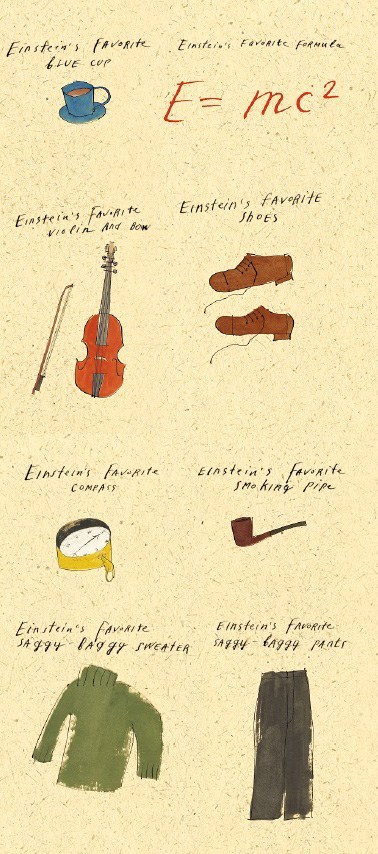 Einstein's Favorite
BLUE CUP
Einstein's Favorite Formula
E = mc²
Einstein's Favorite
violin And Bow
Einstein's FAVORITE
SHOES
Einstein's Favorite
COMPASS
Einstein's Favorite
SMoking Pipe
Einstein's Favorite
SAggy-BAggy SWEATER
Einstein's Favorite
SAggy-BAggy PAnts